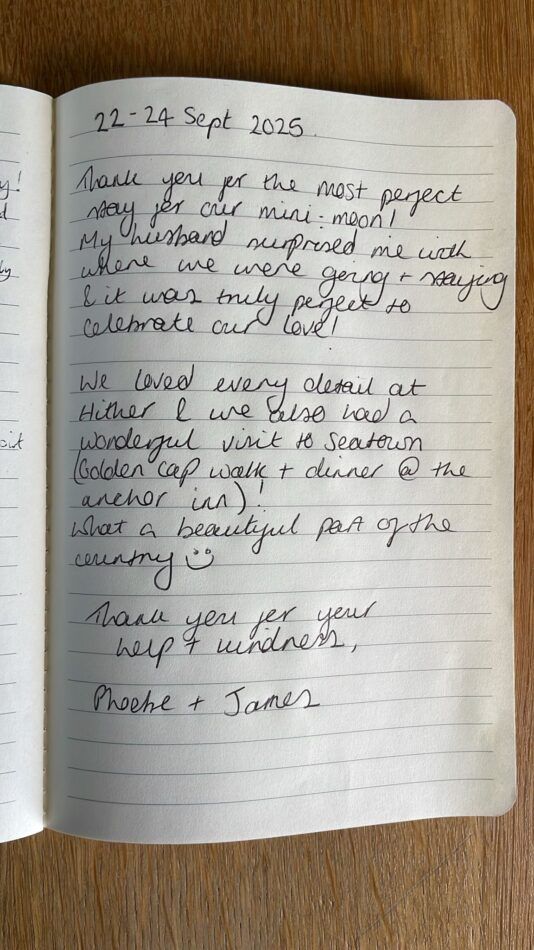 22-24 Sept 2025.
Thank you for the most perfect
stay for our mini-moon!
My husband surprised me with
where we were going + staying
& it was truly perfect to
celebrate our love!
We loved every detail at
Hither & we also had a
wonderful visit to Seatown
(Golden Cap walk + dinner @ the
anchor inn)!
What a beautiful part of the
country
Thank you for your
help + kindness,
Phoebe + James